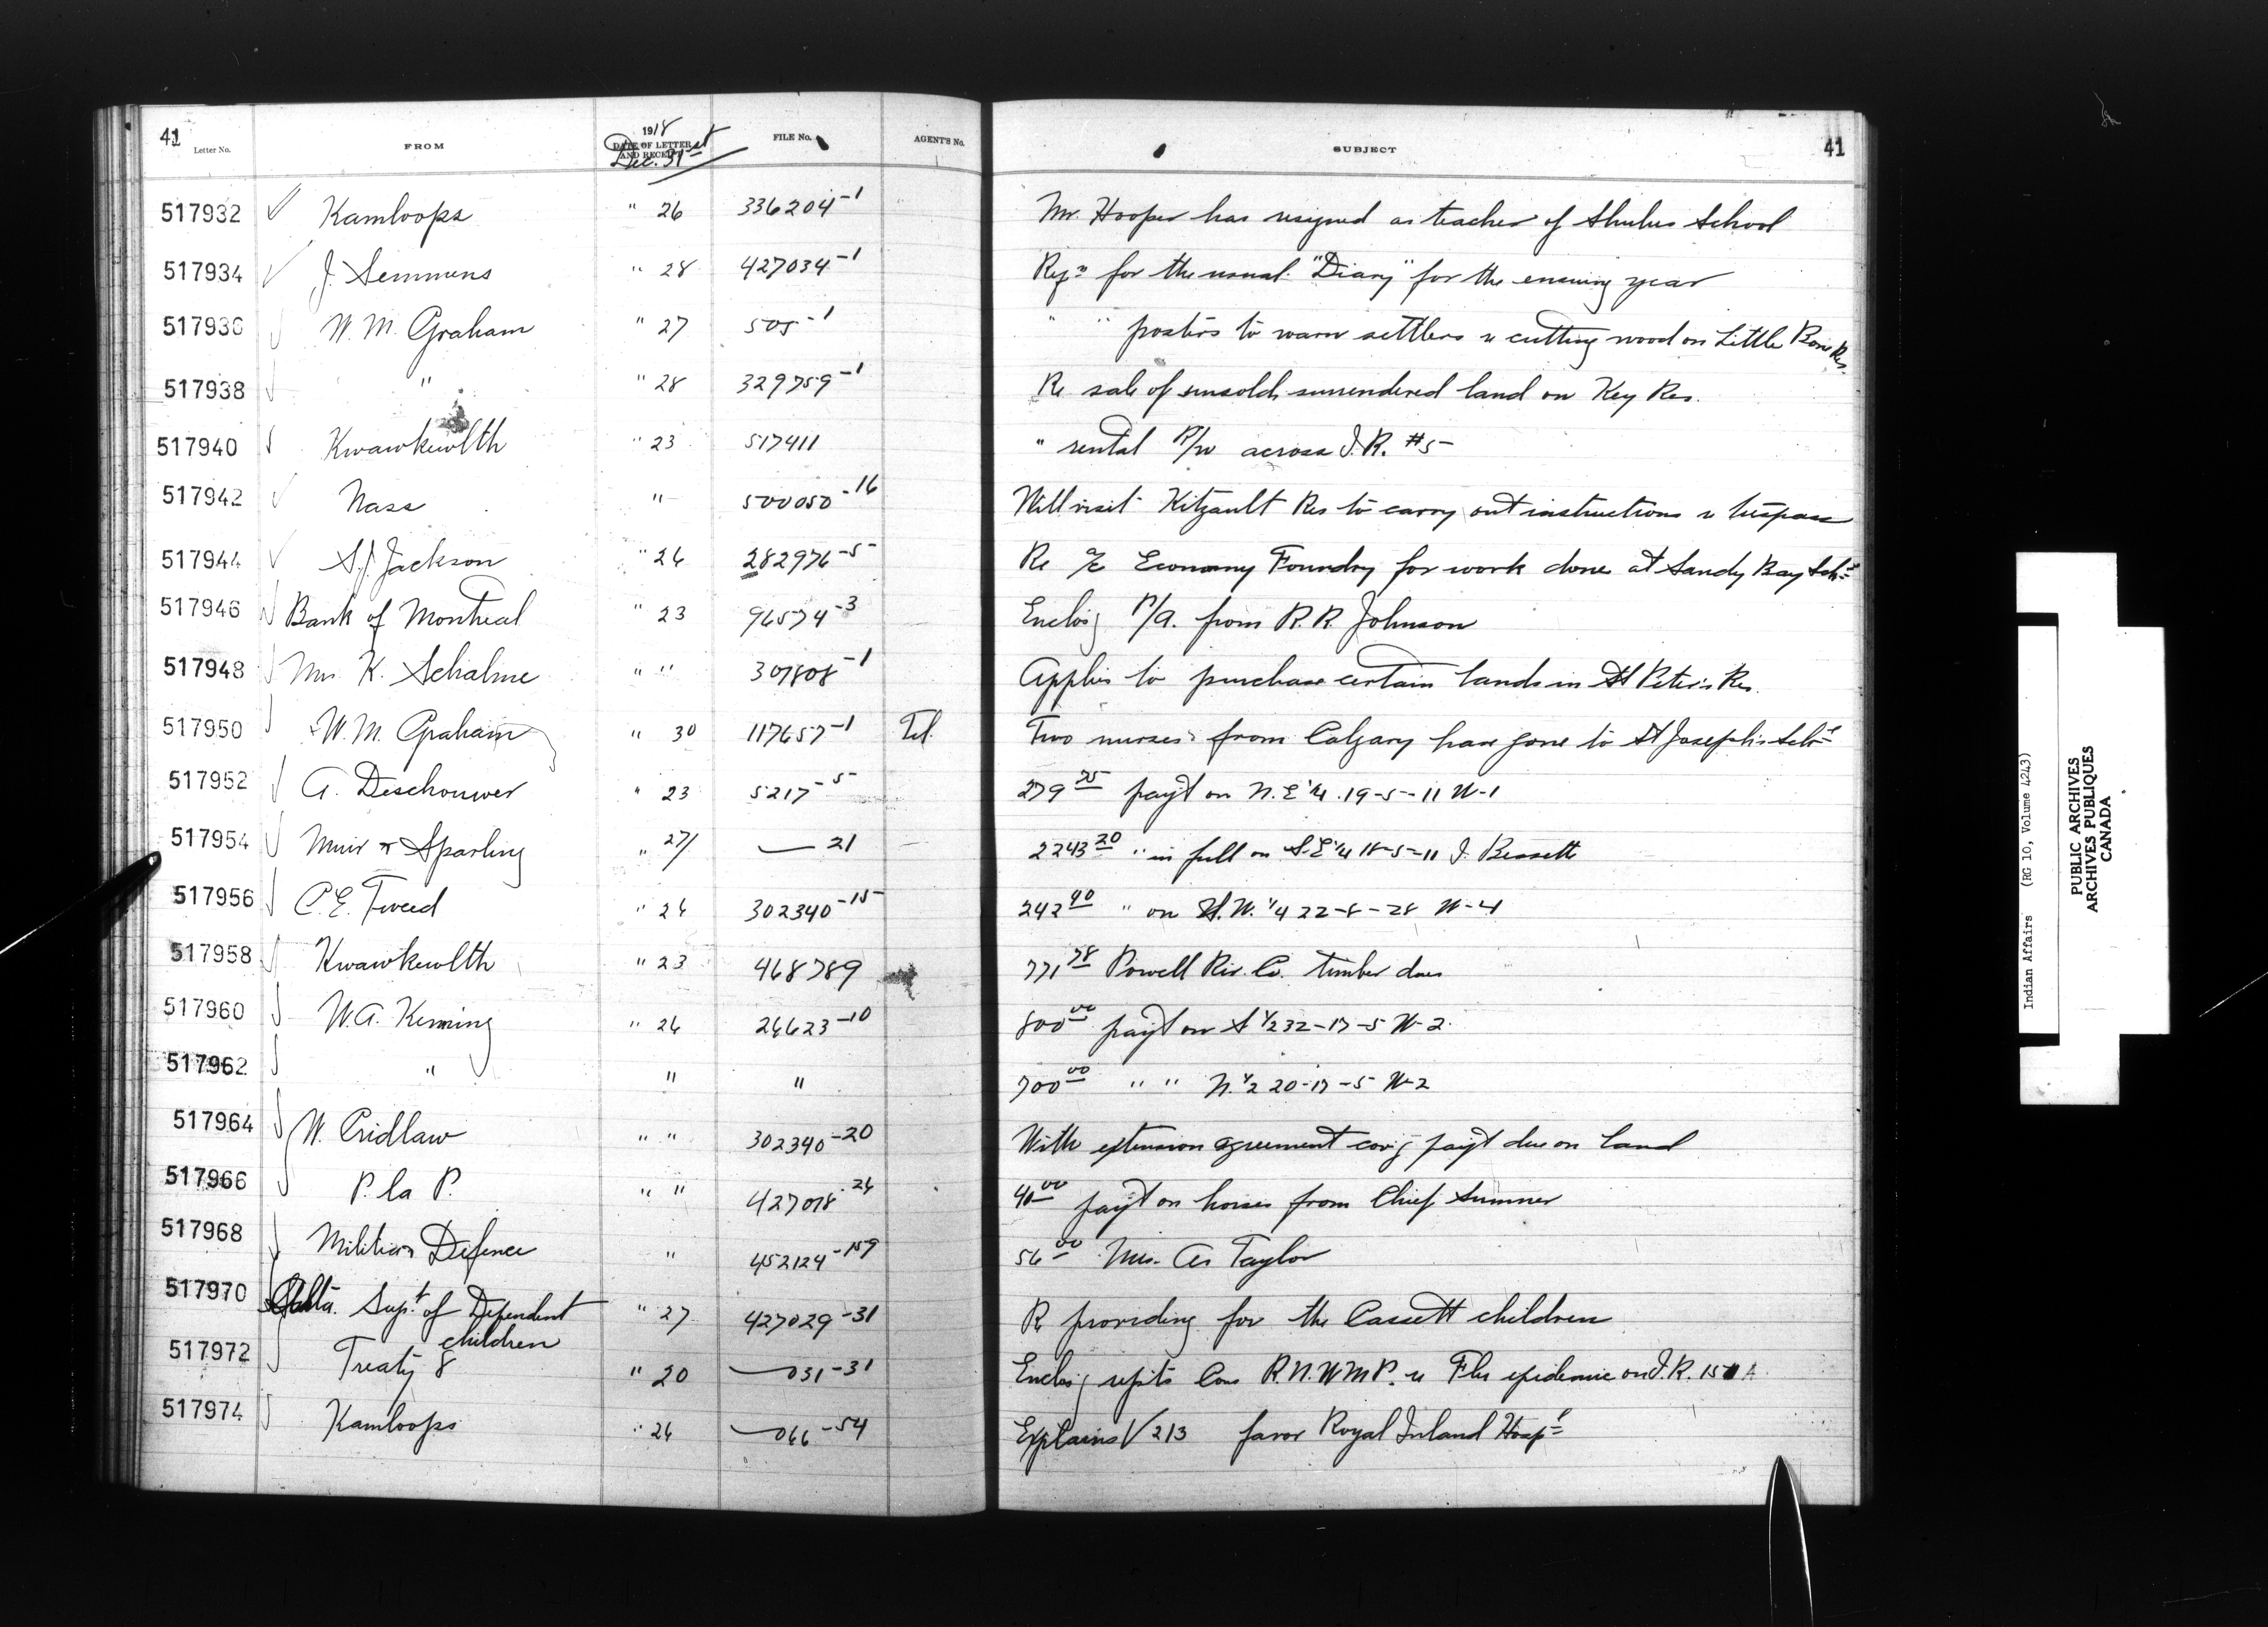 41 Letter No. FROM 1918 DATE OF LETTER AND RECEIPT Dec. 31st FILE No. AGENT'S No. SUBJECT 41
517932 Kamloops " 26 336204-1 Mr. Hooper has resigned as teacher of Shulus School
517934 J. Semmens " 28 427034-1 Reqn for the usual "Diary" for the ensuing year
517936 W. M. Graham " 27 505-1 " " posters to warn settlers re cutting wood on Little Bone Res.
517938 " " 28 329759-1 Re sale of unsold surrendered land on Key Res.
517940 Kwawkewlth " 23 517411 " rental R/W across I.R. #5
517942 Nass " 500050-16 Will visit Kitzault Res to carry out instructions re trespass
517944 S.J. Jackson " 26 282976-5 Re a/c Economy Foundry for work done at Sandy Bay Schl
517946 Bank of Montreal " 23 96574-3 Enclos'g P/A. from R. R. Johnson
517948 Mrs K. Schalme " " 307808-1 Applies to purchase certain lands in St Peter's Res.
517950 W. M. Graham " 30 117657-1 Tel. Two nurses from Calgary have gone to St Joseph's Schl
517952 A. Deschouwer " 23 5217-5 279 25 pay't on N.E 1/4 19-5-11 W-1
517954 Muir & Sparling " 27/ — 21 2243 20 " in full on S.E 1/4 18-5-11 J. Bessette
517956 C.E. Tweed " 26 302340-15 242 40 " on N.W. 1/4 22-8-28 W-4
517958 Kwawkewlth " 23 468789 771 78 Powell Riv. Co. timber dues
517960 W.A. Keming " 26 26623-10 800 00 pay't on S 1/2 32-17-5 W-2
517962 " " " 700 00 " " N. 1/2 20-17-5 W-2
517964 W. Cridlaw " " 302340-20 With extension agreement cov'g pay't due on land
517966 P. la P. " " 427018-26 40 00 pay't on horses from Chief Sumner
517968 Militia & Defence " 452124-159 56 00 Mrs. As Taylor
517970 Alta. Supt. of Dependent children " 27 427029-31 Re providing for the Cassett children
517972 Treaty 8 " 20 — 031-31 Enclos'g rep'ts Cons R.N.W.M.P. re Flu epidemic on I.R. 151 A
517974 Kamloops " 26 — 066-54 Explains V 213 favor Royal Inland Hosp'l
Indian Affairs (RG 10, Volume 4243)
PUBLIC ARCHIVES
ARCHIVES PUBLIQUES
CANADA